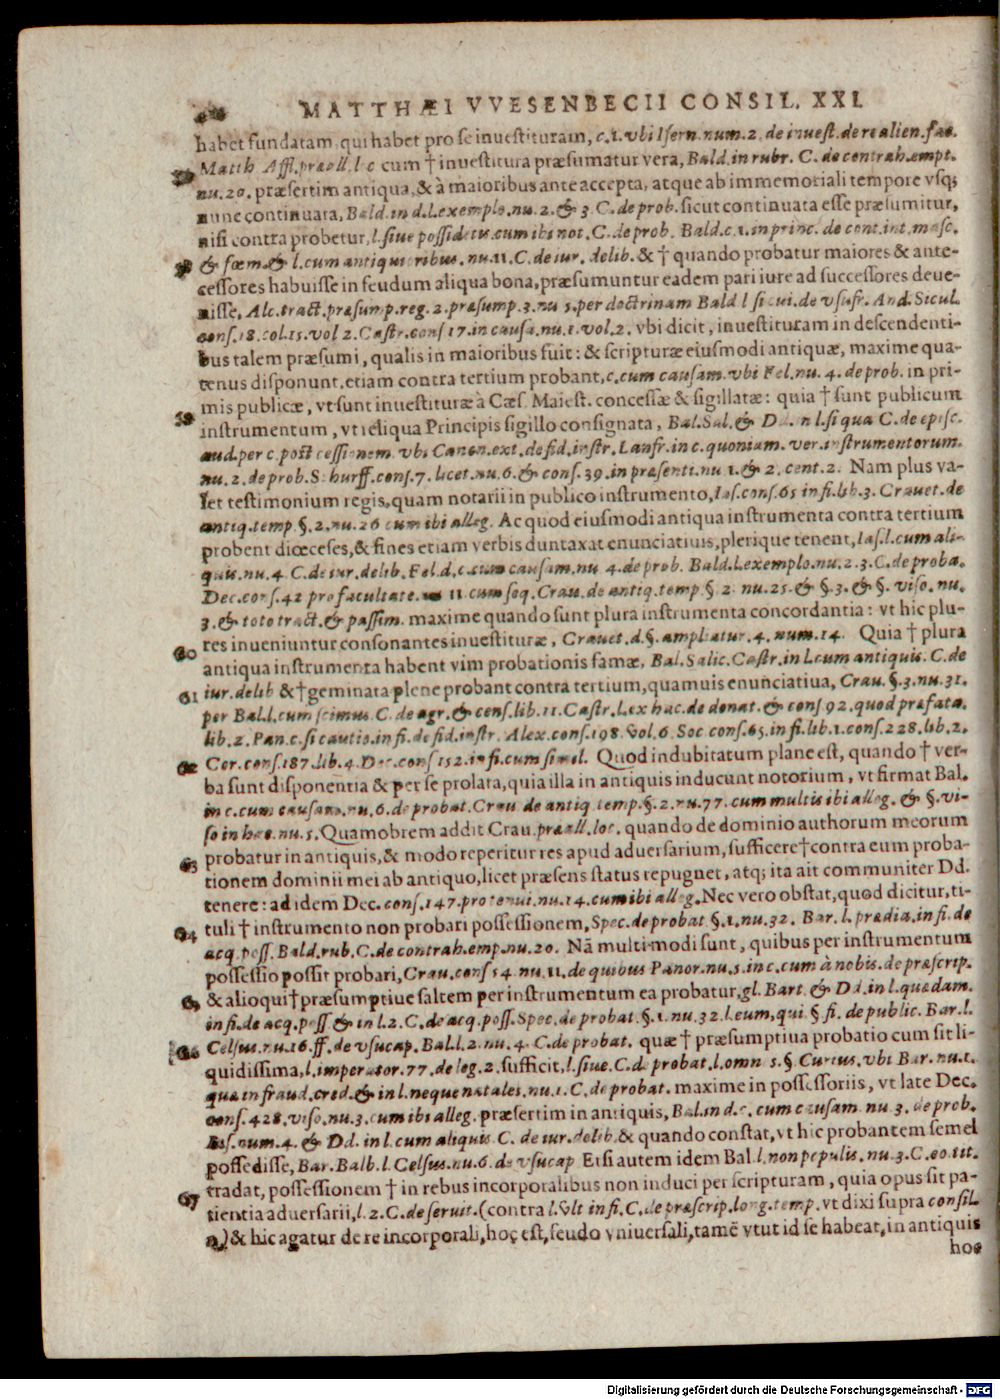 MATTHÆI VVESENBECII CONSIL. XXI.
habet fundatam, qui habet pro se inuestituram, c. 1. vbi Isern. num. 2. de inuest. de re alien. fac.
Matth Affl. præall. l c cum † inuestitura præsumatur vera, Bald. in rubr. C. de contrah. empt.
nu. 20. præsertim antiqua, & à maioribus ante accepta, atque ab immemoriali tempore vsq;
nunc continuata, Bald. in d. l. exemplo. nu. 2. & 3. C. de prob. sicut continuata esse præsumitur,
nisi contra probetur, l. siue possidetis. cum ibi not. C. de prob. Bald. c. 1. in princ. de cont. int. masc.
58 & fœm. & l. cum antiquioribus. nu. 11. C. de iur. delib. & † quando probatur maiores & ante-
cessores habuisse in feudum aliqua bona, præsumuntur eadem pari iure ad successores deue-
nisse, Alc. tract. præsump. reg. 2. præsump. 3. nu 5. per doctrinam Bald l si cui. de vsufr. And. Sicul.
cons. 18. col. 15. vol 2. Castr. cons 17. in causa. nu. 1. vol. 2. vbi dicit, inuestituram in descendenti-
bus talem præsumi, qualis in maioribus fuit: & scripturæ eiusmodi antiquæ, maxime qua-
tenus disponunt, etiam contra tertium probant, c. cum causam. vbi Fel. nu. 4. de prob. in pri-
mis publicæ, vt sunt inuestituræ à Cæs. Maiest. concessæ & sigillatæ: quia † sunt publicum
59 instrumentum, vt reliqua Principis sigillo consignata, Bal. Sal. & Dd. in l. si qua C. de episc.
aud. per c. post cessionem. vbi Canon. ext. de fid. instr. Lanfr. in c. quoniam. ver. instrumentorum.
nu. 2. de prob. Schurff. cons. 7. licet. nu. 6. & cons. 39. in præsenti. nu 1. & 2. cent. 2. Nam plus va-
let testimonium regis, quam notarii in publico instrumento, Ias. cons. 65 in fi. lib. 3. Crauet. de
antiq. temp. §. 2. nu. 26 cum ibi alleg. Ac quod eiusmodi antiqua instrumenta contra tertium
probent diœceses, & fines etiam verbis duntaxat enunciatiuis, plerique tenent, Ias. l. cum ali-
quis. nu. 4. C. de iur. delib. Fel. d. c. cum causam. nu 4. de prob. Bald. l. exemplo. nu. 2. 3. C. de proba.
Dec. cons. 42 pro facultate. nu 11. cum seq. Crau. de antiq. temp. §. 2. nu. 25. & §. 3. & §. viso. nu.
3. & toto tract. & passim. maxime quando sunt plura instrumenta concordantia: vt hic plu-
60 res inueniuntur consonantes inuestituræ, Crauet. d. §. ampliatur. 4. num. 14. Quia † plura
antiqua instrumenta habent vim probationis famæ, Bal. Salic. Castr. in l. cum antiquis. C. de
61 iur. delib & † geminata plene probant contra tertium, quamuis enunciatiua, Crau. §. 3. nu. 31.
per Bal. l. cum scimus. C. de agr. & cens. lib. 11. Castr. l. ex hac. de donat. & cons 92. quod præfata.
lib. 2. Pan. c. si cautio. in fi. de fid. instr. Alex. cons. 198. vol. 6. Soc cons. 65. in fi. lib. 1. cons. 228. lib. 2.
62 Cor. cons. 187. lib. 4. Dec. cons 152. in fi. cum simil. Quod indubitatum plane est, quando † ver-
ba sunt disponentia & per se prolata, quia illa in antiquis inducunt notorium, vt firmat Bal.
in c. cum causam. nu. 6. de probat. Crau de antiq temp. §. 2. nu. 77. cum multis ibi alleg. & §. vi-
so in hac. nu. 5. Quamobrem addit Crau. præall. loc. quando de dominio authorum meorum
63 probatur in antiquis, & modo reperitur res apud aduersarium, sufficere † contra eum proba-
tionem dominii mei ab antiquo, licet præsens status repugnet, atq; ita ait communiter Dd.
tenere: ad idem Dec. cons. 147. pro tenui. nu. 14. cum ibi alleg. Nec vero obstat, quod dicitur, ti-
64 tuli † instrumento non probari possessionem, Spec. de probat §. 1. nu. 32. Bar. l. prædia. in fi. de
acq. poss. Bald. rub. C. de contrah. emp. nu. 20. Nã multi modi sunt, quibus per instrumentum
possessio possit probari, Crau. cons 54. nu. 11. de quibus Panor. nu. 5. in c. cum à nobis. de præscrip.
65 & alioqui † præsumptiue saltem per instrumentum ea probatur, gl. Bart. & Dd. in l. quædam.
in fi. de acq. poss & in l. 2. C. de acq. poss. Spec. de probat. §. 1. nu. 32 l. eum, qui. §. fi. de public. Bar. l.
66 Celsus. nu. 16. ff. de vsucap. Bal. l. 2. nu. 4. C. de probat. quæ † præsumptiua probatio cum sit li-
quidissima, l. imperator. 77. de leg. 2. sufficit, l. siue. C. de probat. l. omnes. §. Curius. vbi Bar. nu. 1.
quæ in fraud. cred. & in l. neque natales. nu. 1. C. de probat. maxime in possessoriis, vt late Dec.
cons. 428. viso. nu. 3. cum ibi alleg. præsertim in antiquis, Bal. in d. c. cum causam. nu. 3. de prob.
Ias. num. 4. & Dd. in l. cum aliquis C. de iur. delib. & quando constat, vt hic probantem semel
possedisse, Bar. Balb. l. Celsus. nu. 6. de vsucap Etsi autem idem Bal l. non pepulis. nu. 3. C. eo. tit.
67 tradat, possessionem † in rebus incorporalibus non induci per scripturam, quia opus sit pa-
tientia aduersarii, l. 2. C. de seruit. (contra l. vlt in fi. C. de præscrip. long. temp. vt dixi supra consil.
n.) & hic agatur de re incorporali, hoc est, feudo vniuersali, tamẽ vtut id se habeat, in antiquis
hoc
Digitalisierung gefördert durch die Deutsche Forschungsgemeinschaft - DFG